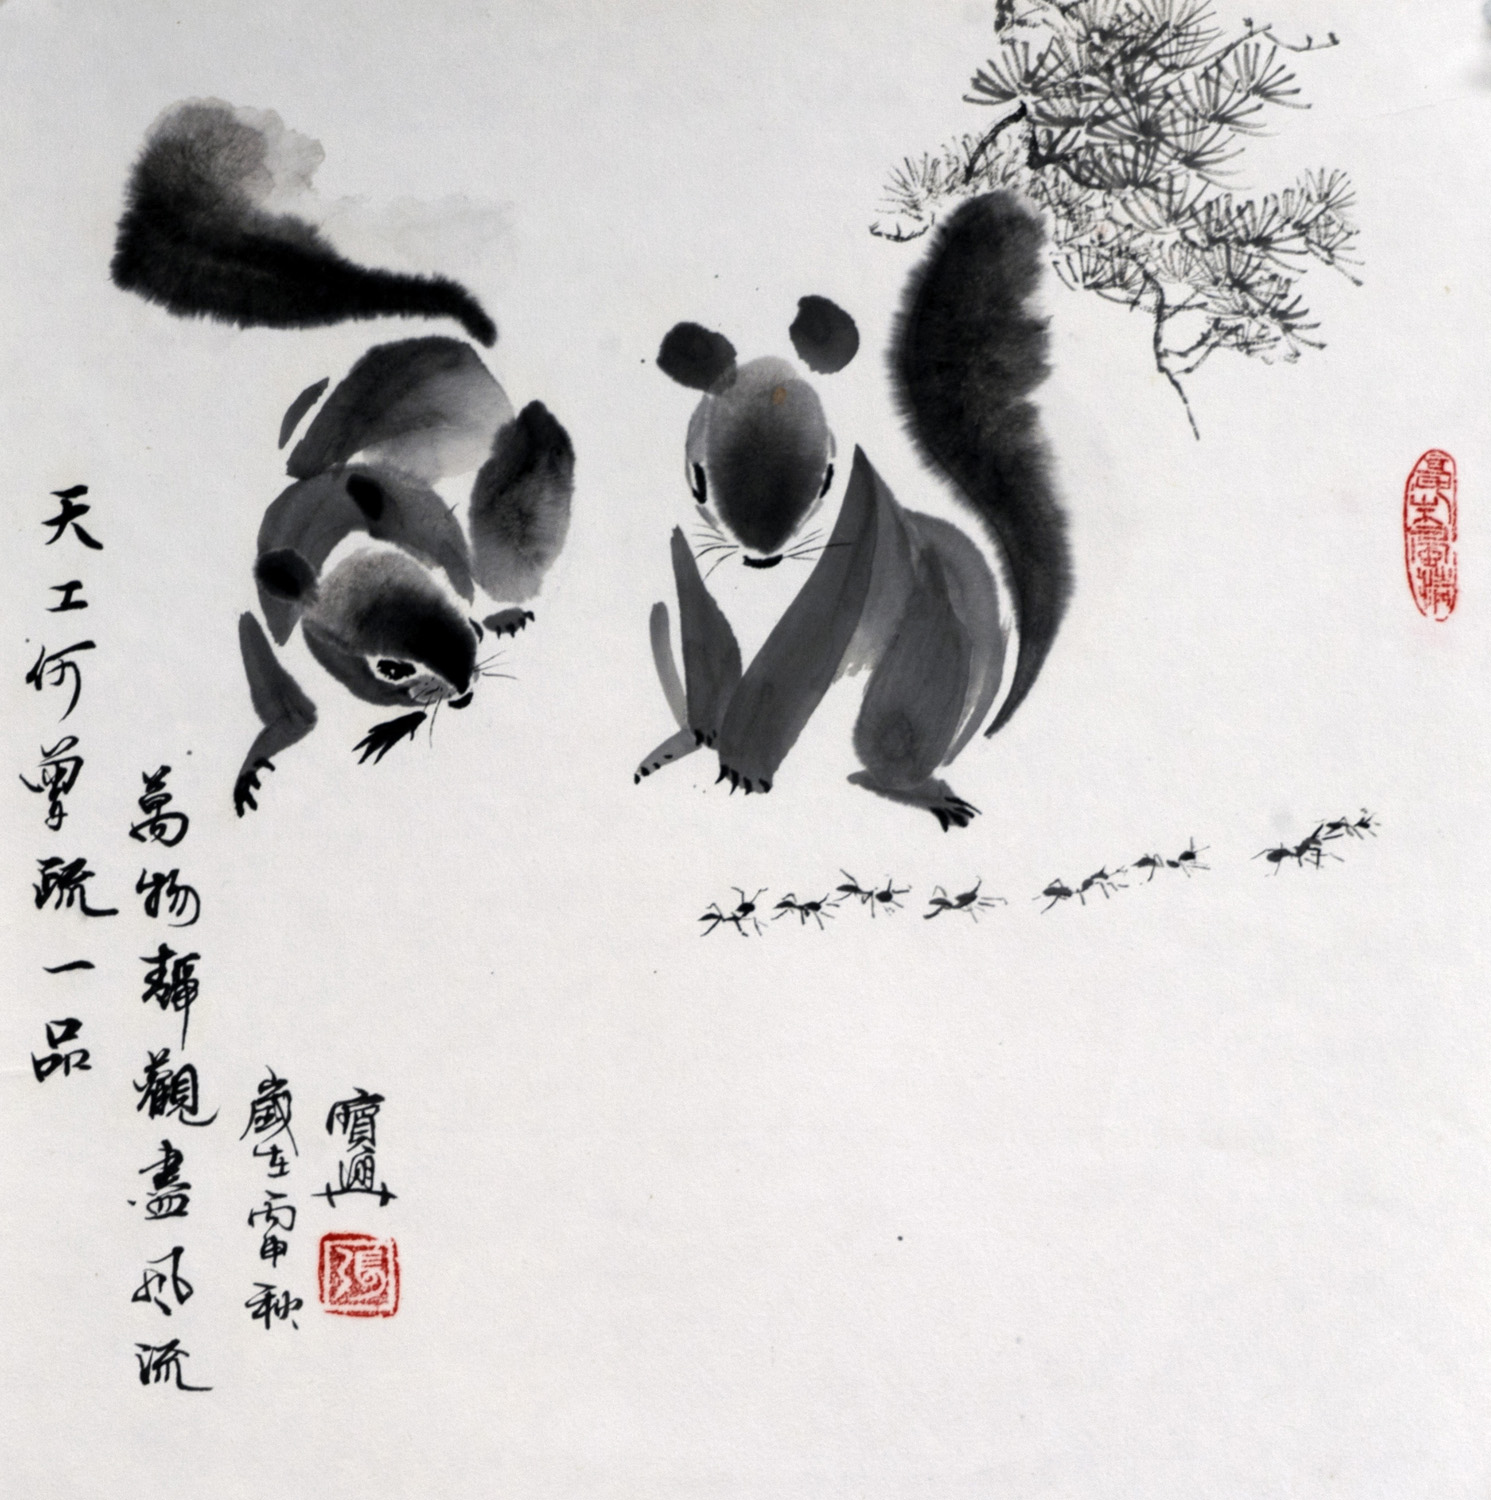 天工何曾疏一品
萬物靜觀盡風流
歲在丙申秋
張